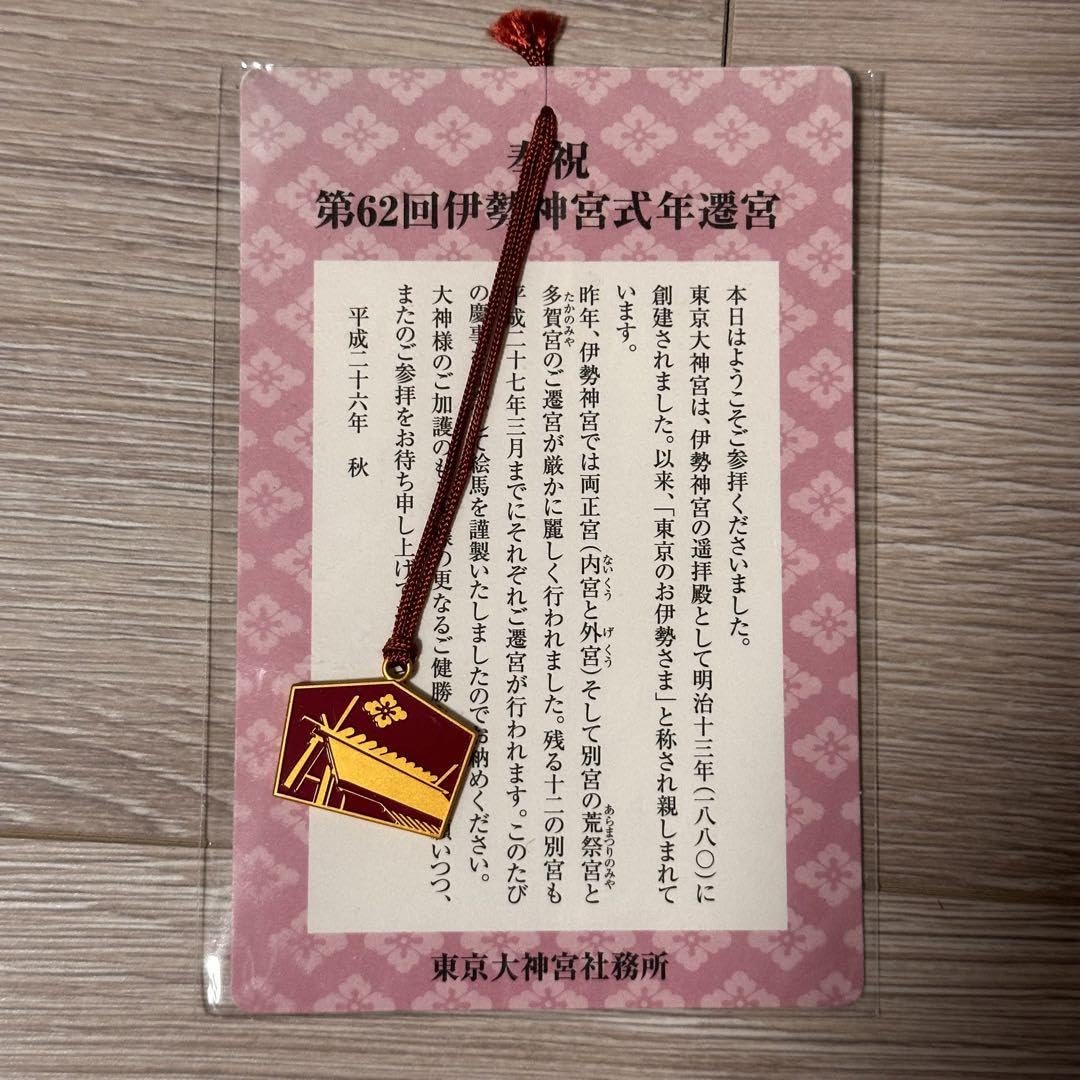 奉祝
第62回伊勢神宮式年遷宮
本日はようこそご参拝くださいました。
東京大神宮は、伊勢神宮の遥拝殿として明治十三年(一八八〇)に
創建されました。以来、「東京のお伊勢さま」と称され親しまれて
います。
昨年、伊勢神宮では両正宮(内宮と外宮)そして別宮の荒祭宮と
ないくう げくう あらまつりのみや
多賀宮のご遷宮が厳かに麗しく行われました。残る十二の別宮も
たかのみや
平成二十七年三月までにそれぞれご遷宮が行われます。このたび
の慶事 て絵馬を謹製いたしましたのでお納めください。
大神様のご加護のも 様の更なるご健勝 いつつ、
またのご参拝をお待ち申し上げ
平成二十六年 秋
東京大神宮社務所